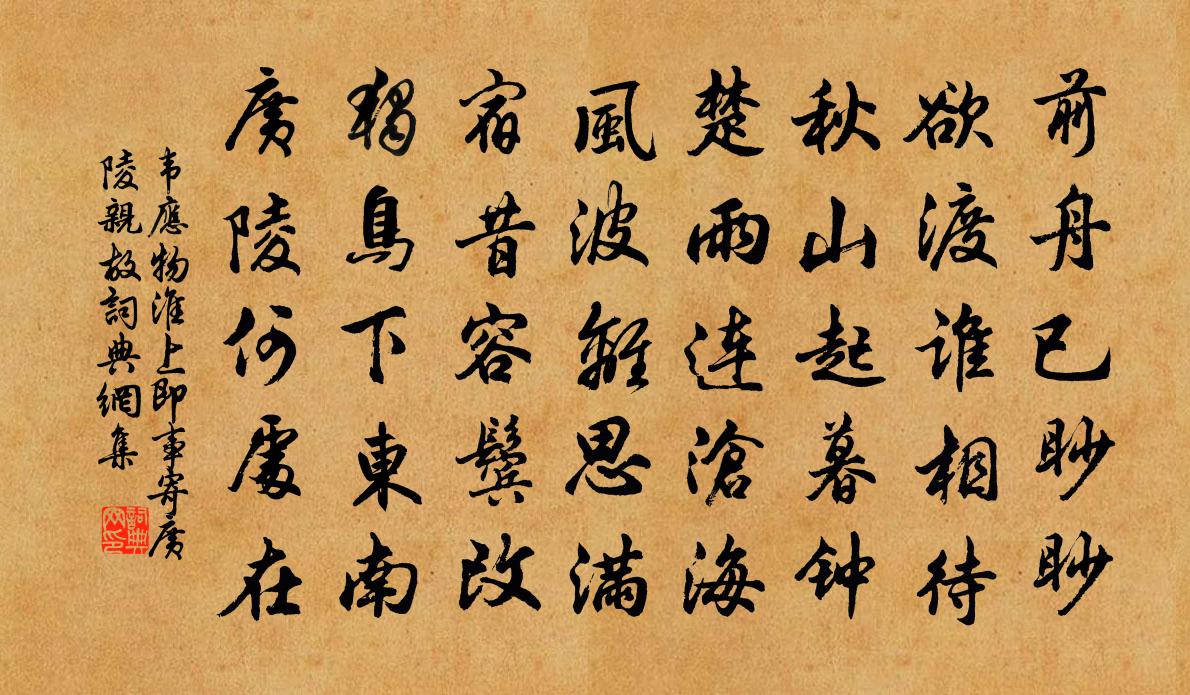 前舟已眇眇
欲渡誰相待
秋山起暮钟
楚雨连滄海
風波離思满
宿昔容鬓改
獨鳥下東南
廣陵何處在
韦應物淮上即事寄廣
陵親故詞典網集
詞典
网印